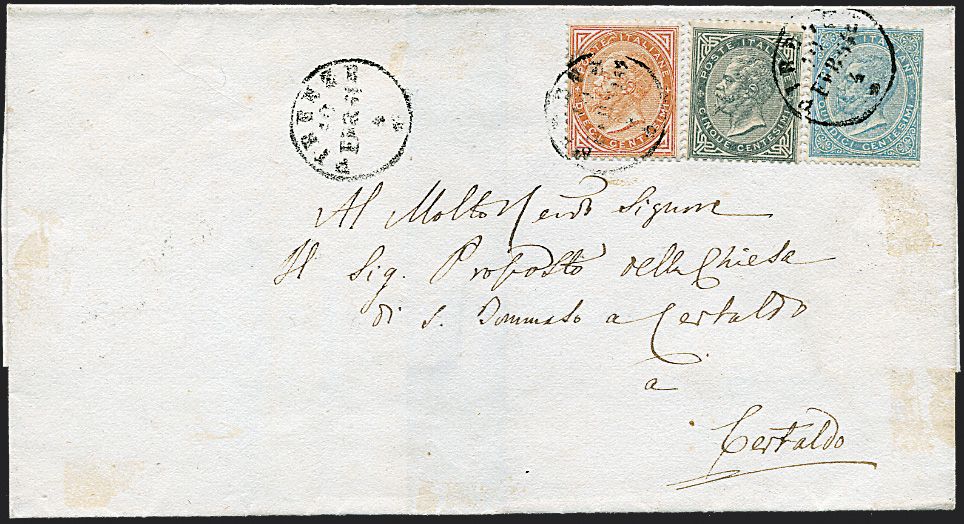 POSTE ITALIANE
DIECI CENTESIMI
POSTE ITALIANE
CINQUE CENTESIMI
CENTESIMI
FIRENZE
Al Molto Rendo Signore
Il Sig. Proposto della Chiesa
di S. Tommaso a Certaldo
a
Certaldo